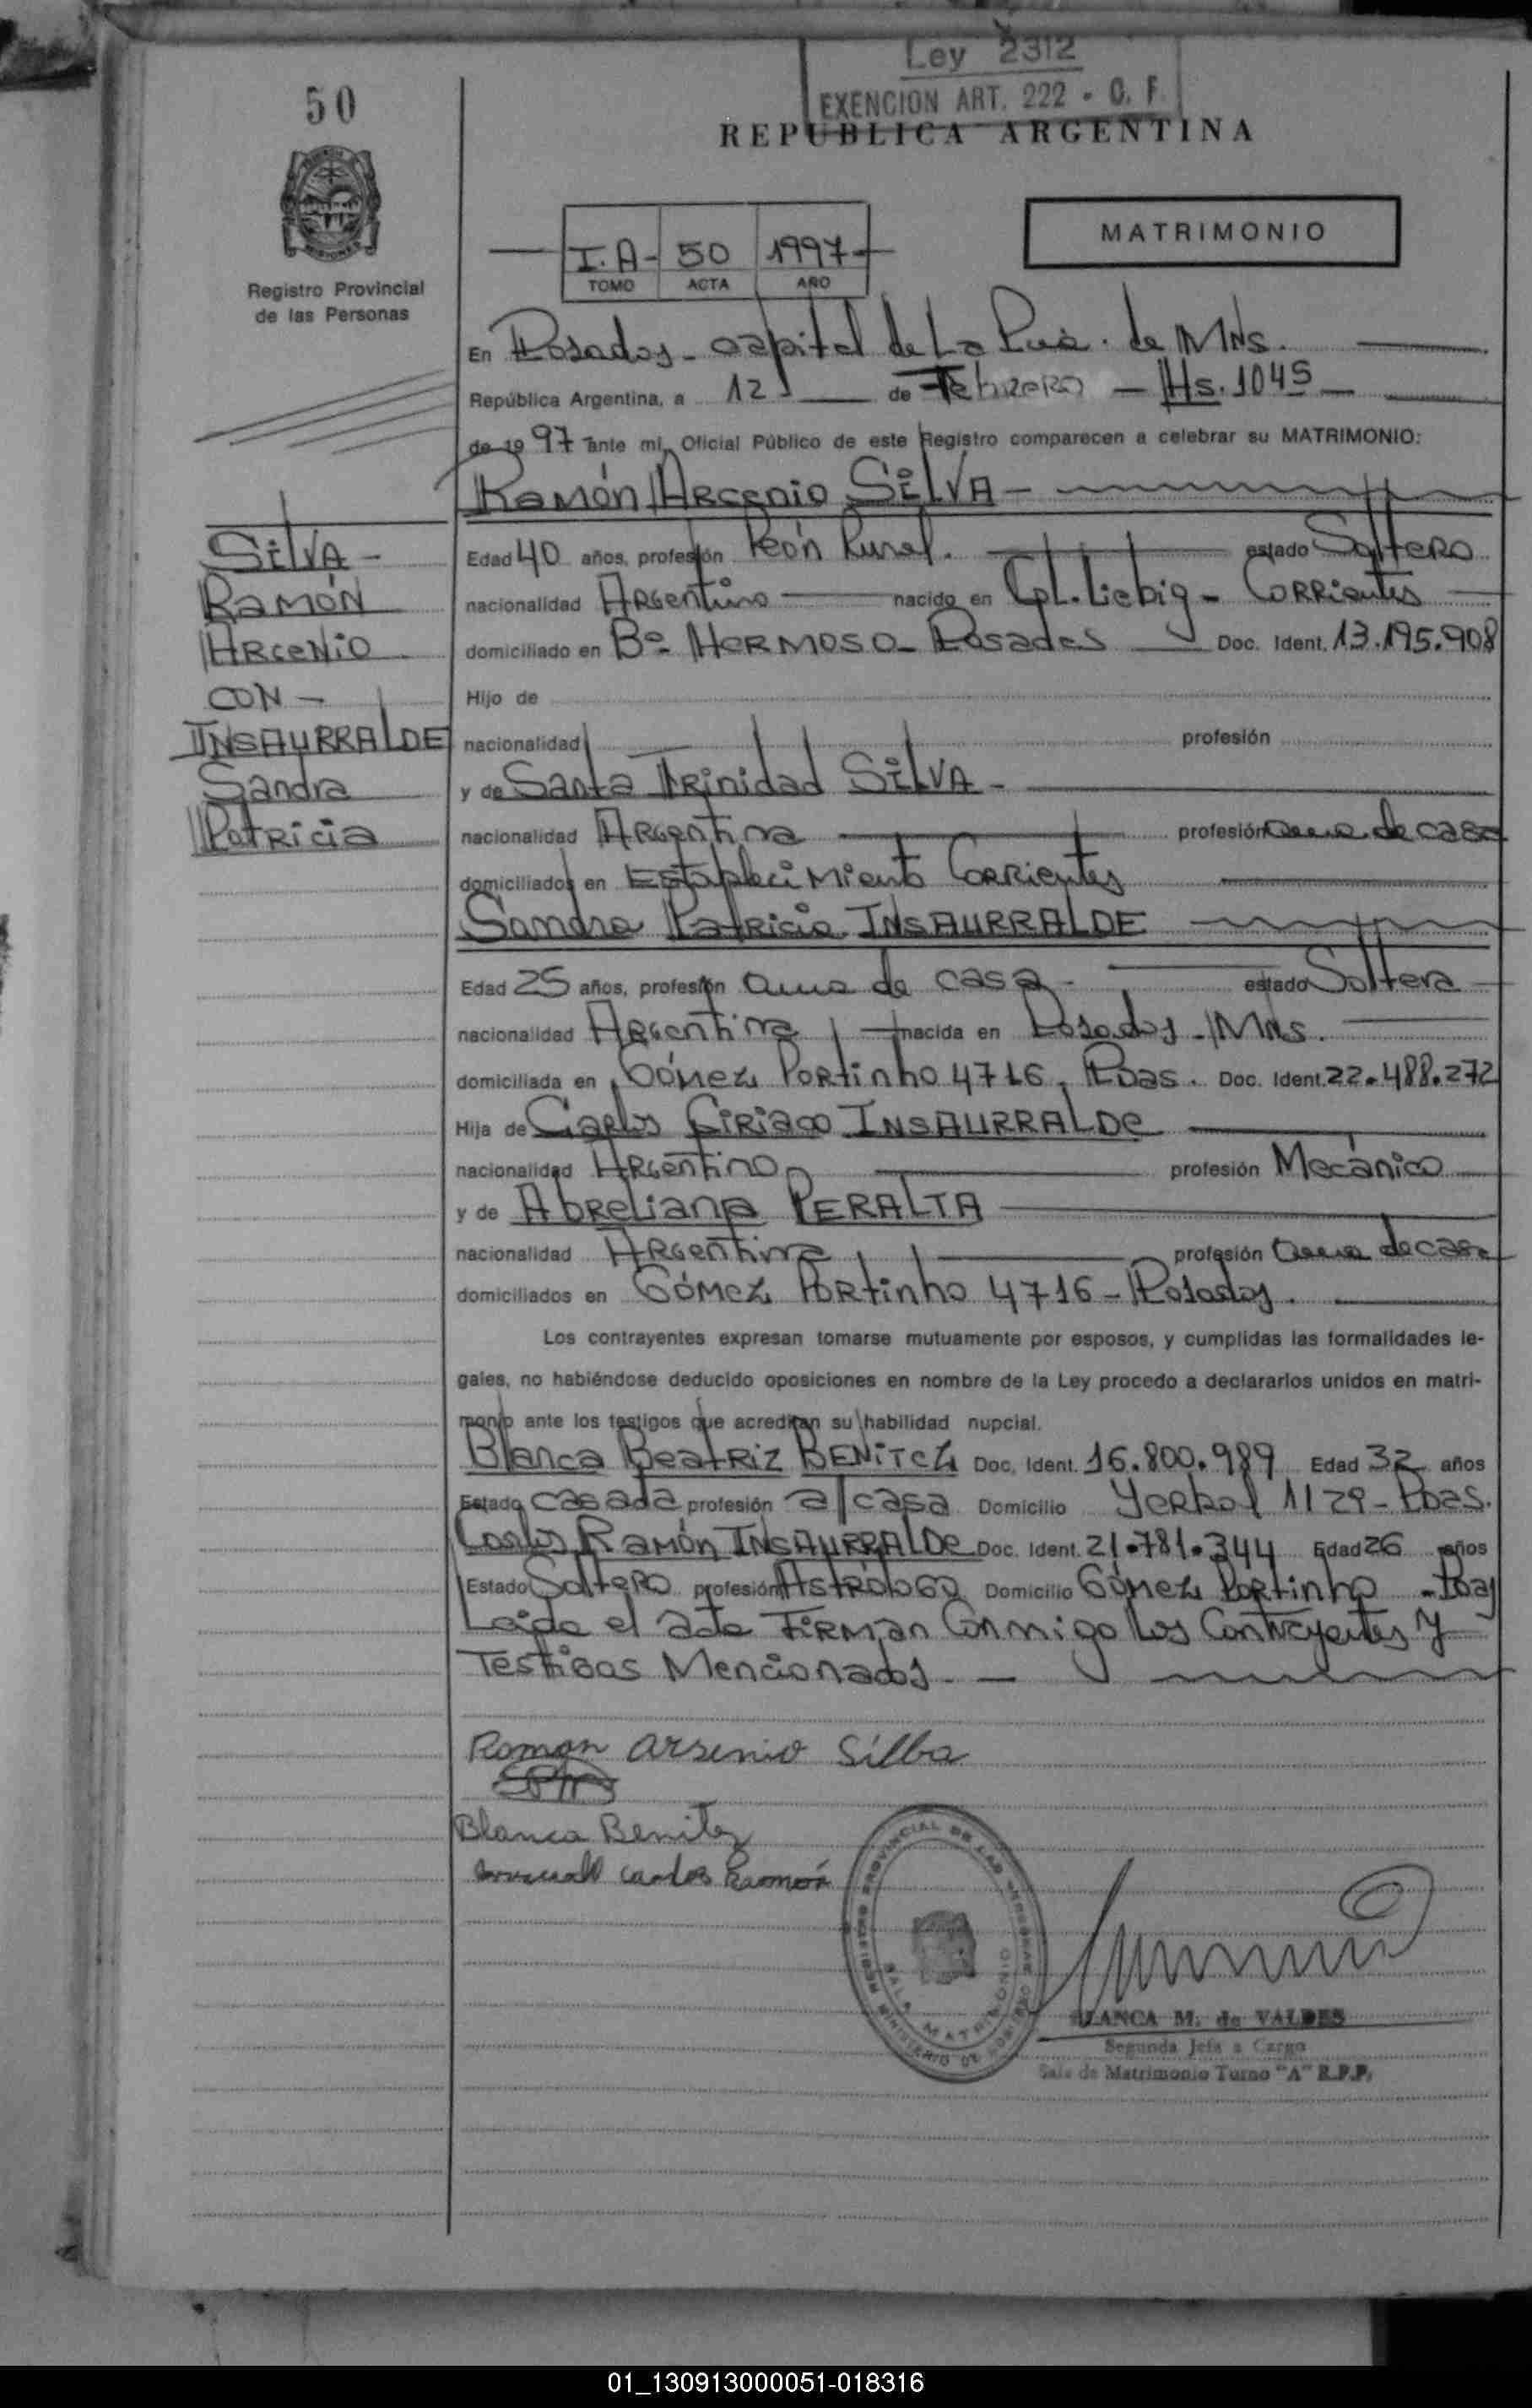 Ley 2312
EXENCION ART. 222 - C. F.
50
REPUBLICA ARGENTINA
MATRIMONIO
I.A- 50 1997
TOMO ACTA AÑO
Registro Provincial
de las Personas
En Posadas - capital de La Pcia. de MNs.
República Argentina, a 12 de Febrero - Hs. 1045
de 1997 ante mi, Oficial Público de este Registro comparecen a celebrar su MATRIMONIO:
Ramón Arcenio SilVA -
SilVA -
Ramón
Arcenio
CON -
INSAURRALDE
Sandra
Patricia
Edad 40 años, profesión Peón Rural. estado Soltero
nacionalidad Argentino nacido en Cpl. Liebig - Corrientes
domiciliado en Bº Hermoso - Posadas Doc. Ident. 13.195.908
Hijo de
nacionalidad profesión
y de Santa Trinidad SilVA -
nacionalidad Argentina profesión ama de casa
domiciliados en Establecimiento Corrientes
Sandra Patricia INSAURRALDE
Edad 25 años, profesión ama de casa - estado Soltera
nacionalidad Argentina nacida en Posadas - MNs.
domiciliada en Gómez Portinho 4716, Pdas. Doc. Ident. 22.488.272
Hija de Carlos Ciriaco INSAURRALDE
nacionalidad Argentino profesión Mecánico
y de Abreliana PERALTA
nacionalidad Argentina profesión ama de casa
domiciliados en Gómez Portinho 4716 - Posadas.
Los contrayentes expresan tomarse mutuamente por esposos, y cumplidas las formalidades le-
gales, no habiéndose deducido oposiciones en nombre de la Ley procedo a declararlos unidos en matri-
monio ante los testigos que acreditan su habilidad nupcial.
Blanca Beatriz BENITEZ Doc. Ident. 16.800.989 Edad 32 años
Estado casada profesión a/casa Domicilio Yerbal 1129 - Pdas.
Carlos Ramón INSAURRALDE Doc. Ident. 21.781.344 Edad 26 años
Estado Soltero profesión Astrólogo Domicilio Gómez Portinho - Pdas
Leida el acta Firman Conmigo los Contrayentes y
Testigos Mencionados. -
Roman arsenio Silba
Blanca Benitez
Carlos Ramón
REGISTRO PROVINCIAL DE LAS PERSONAS
SALA MATRIMONIO
MINISTERIO DE GOBIERNO
BLANCA M. de VALDES
Segunda Jefa a Cargo
Sala de Matrimonio Turno "A" R.P.P.
01_130913000051-018316